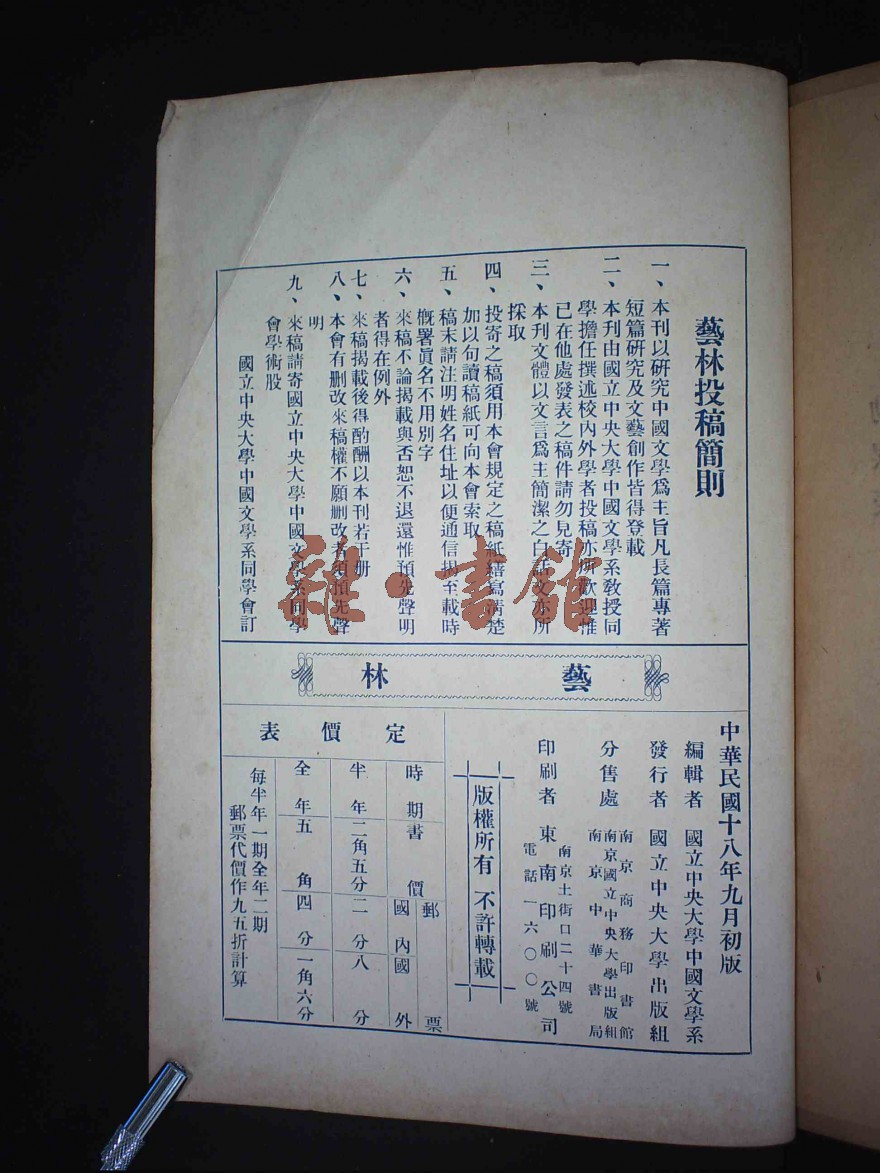 藝林投稿簡則
一、本刊以研究中國文學爲主旨凡長篇專著
短篇研究及文藝創作皆得登載
二、本刊由國立中央大學中國文學系敎授同
學擔任撰述校內外學者投稿亦所歡迎惟
已在他處發表之稿件請勿見寄
三、本刊文體以文言爲主簡潔之白話文亦所
採取
四、投寄之稿須用本會規定之稿紙繕寫淸楚
加以句讀稿紙可向本會索取
五、稿末請注明姓名住址以便通信揭至載時
槪署眞名不用別字
六、來稿不論揭載與否恕不退還惟預先聲明
者得在例外
七、來稿揭載後得酌酬以本刊若干册
八、本會有刪改來稿權不願刪改者須預先聲
明
九、來稿請寄國立中央大學中國文學系同學
會學術股
國立中央大學中國文學系同學會訂
雜·書館
藝林
中華民國十八年九月初版
編輯者 國立中央大學中國文學系
發行者 國立中央大學出版組
分售處
南京商務印書館
南京國立中央大學出版組
南京中華書局
印刷者 東南印刷公司
南京土街口二十四號
電話一六〇〇號
版權所有 不許轉載
定價表
時期 書價 郵票
國內 國外
半年 二角五分 二分 八分
全年 五角 四分 一角六分
每半年一期全年二期
郵票代價作九五折計算